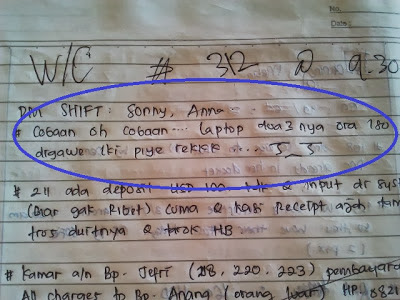 No.
Date:
W/C # 312 @ 9.30
PM SHIFT: Sonny, Anna ...
# Cobaan oh cobaan .... laptop dua3 nya ora iso
digawe iki piye rekkk .... 5_5
# 211 ada deposit USD 100. & input dr syst
(Biar gak Ribet) cuma & kasi Receipt ajah tam
trus duitnya & HB
# Kamar a/n Bp. Jefri (218, 220, 223) pembayara
All charges to Bp. Anang (orang luar) HP: 0821